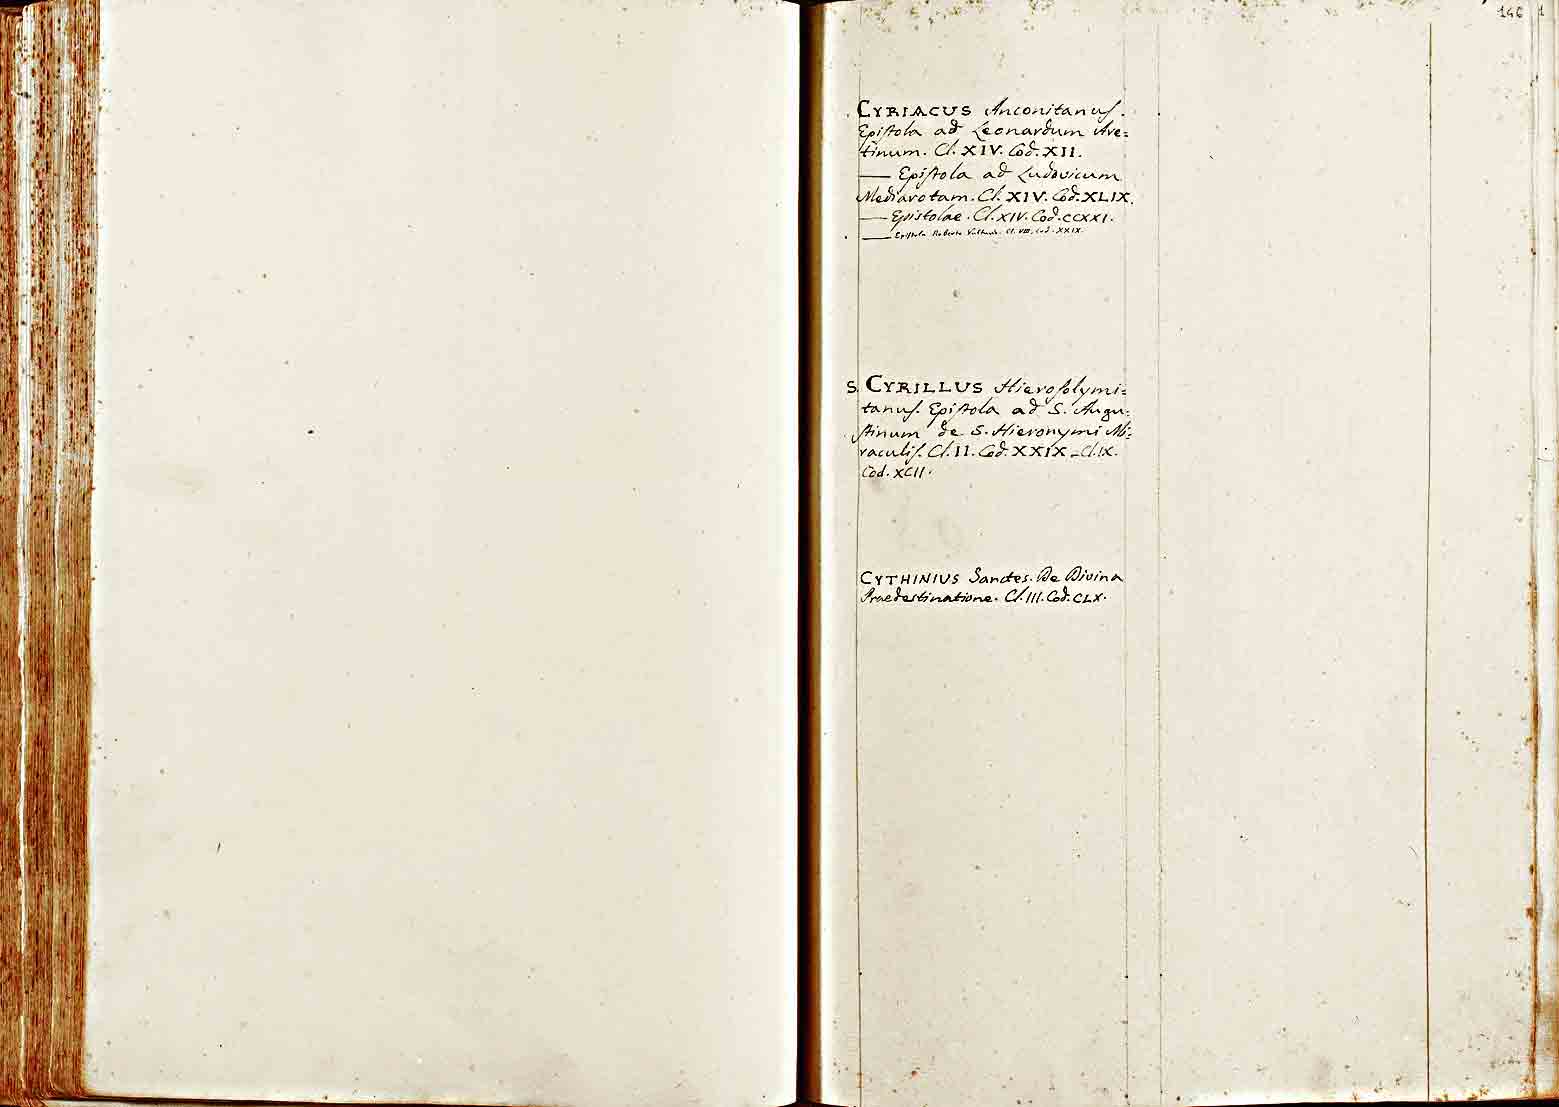 146 1
CYRIACUS Anconitanus.
Epistola ad Leonardum Are=
tinum. Cl. XIV. Cod. XII.
—— Epistola ad Ludovicum
Mediarotam. Cl. XIV. Cod. XLIX.
—— Epistolae. Cl. XIV. Cod. CCXXI.
—— Epistola Roberto Cl. VIII. Cod. XXIX.
S. CYRILLUS Hierosolymi=
tanus. Epistola ad S. Augu=
stinum de S. Hieronymi Mi=
raculis. Cl. II. Cod. XXIX _ Cl. IX.
Cod. XCII.
CYTHINIUS Sanctes. De Divina
Praedestinatione. Cl. III. Cod. CLX.